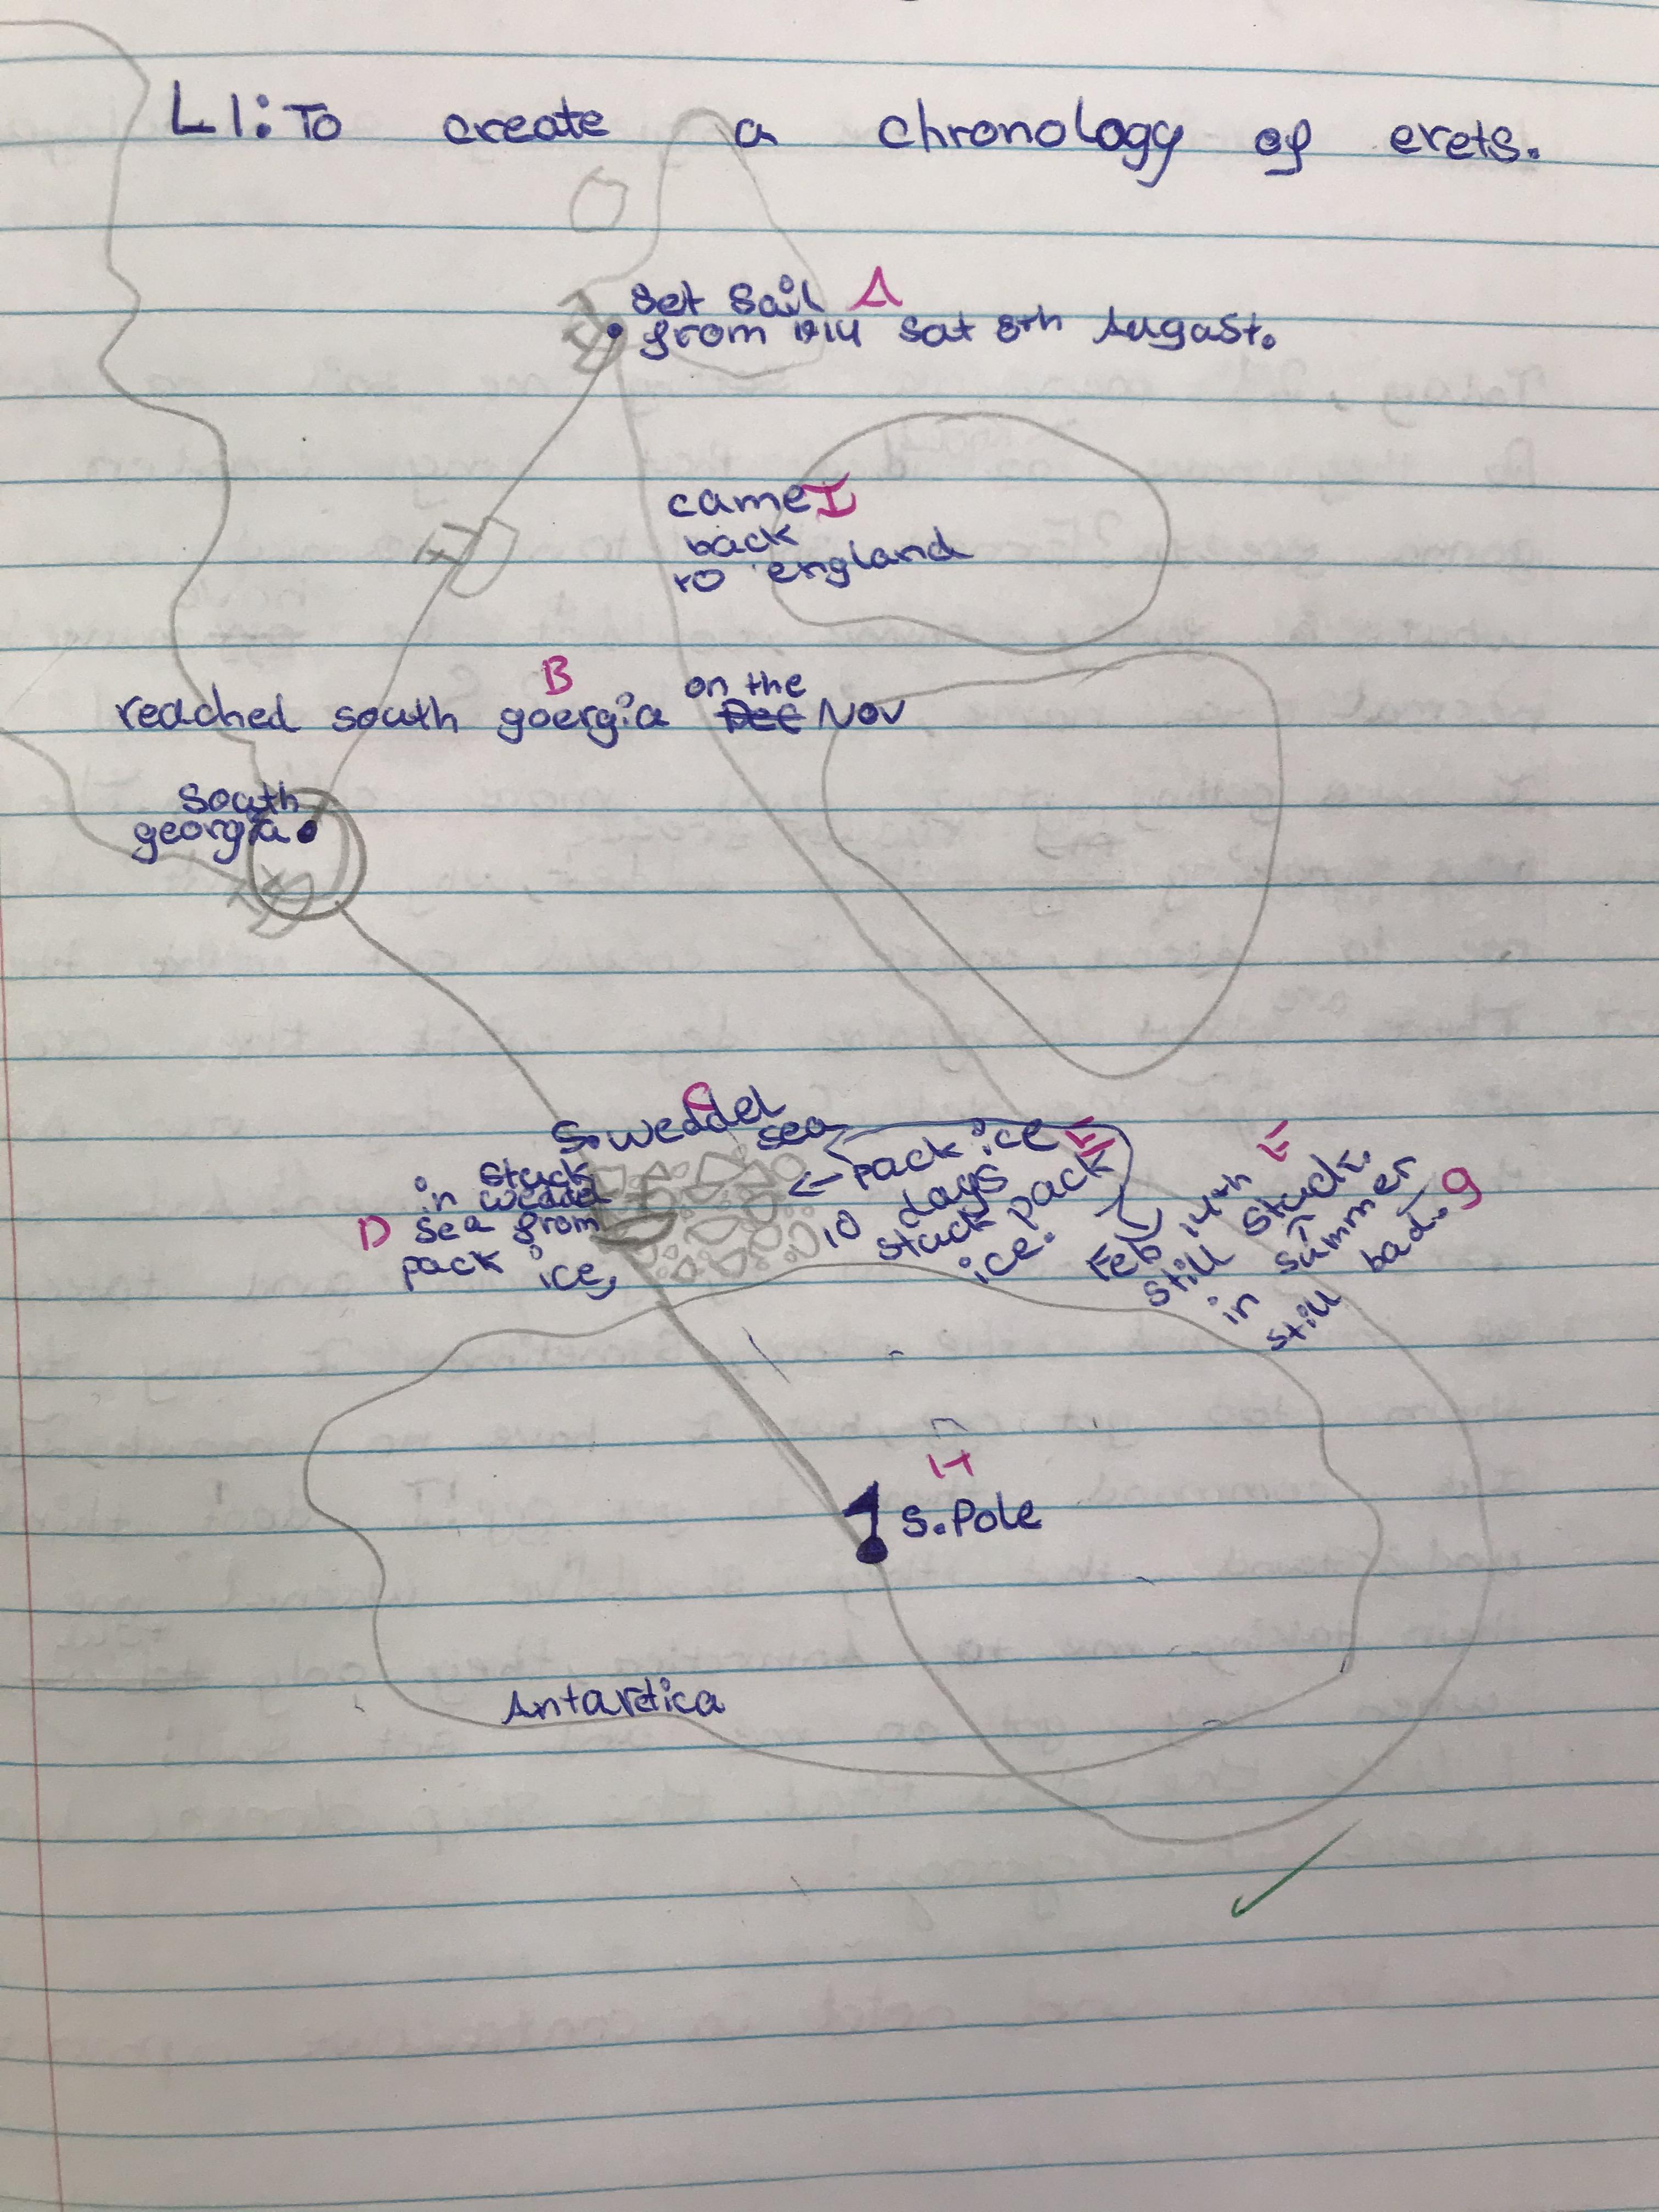 LI: To create a chronology of evets.
set sail A
from 1914 sat 8th Augast.
came I
back
to england
B
on the
reached south goergia Dec Nov
South
georgia
C
S. weddel
sea
D
stuck
in weddel
sea from
pack ice,
pack ice E
10 days
stuck pack
ice.
Feb 14th F
still stuck
in summer
still bad. g
H
S. Pole
Antartica